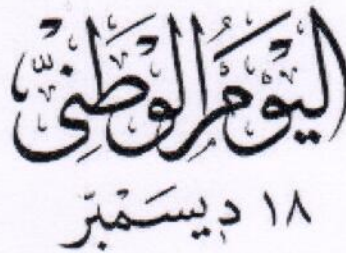 اليَوْمُ الوَطَنِيّ
١٨ ديسَمْبَر